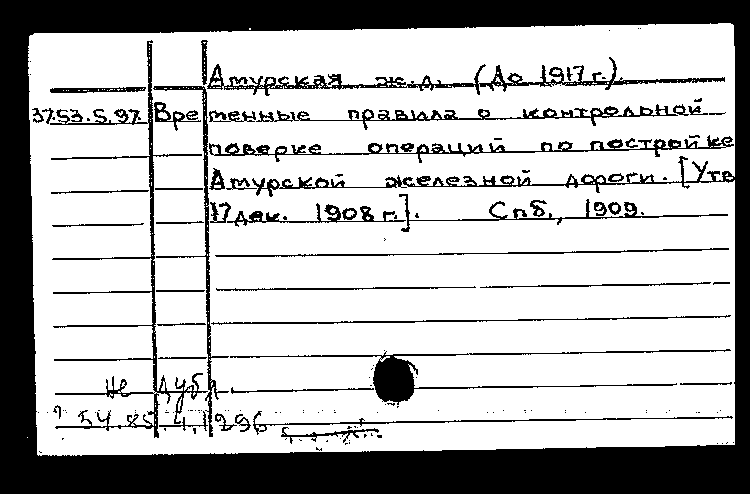 Амурская ж.д. (До 1917 г.).
37.53.5.97. Временные правила о контрольной
поверке операций по постройке
Амурской железной дороги. [Утв
17 дек. 1908 г.]. Спб., 1909.
не дубл.
54.85.4.1296